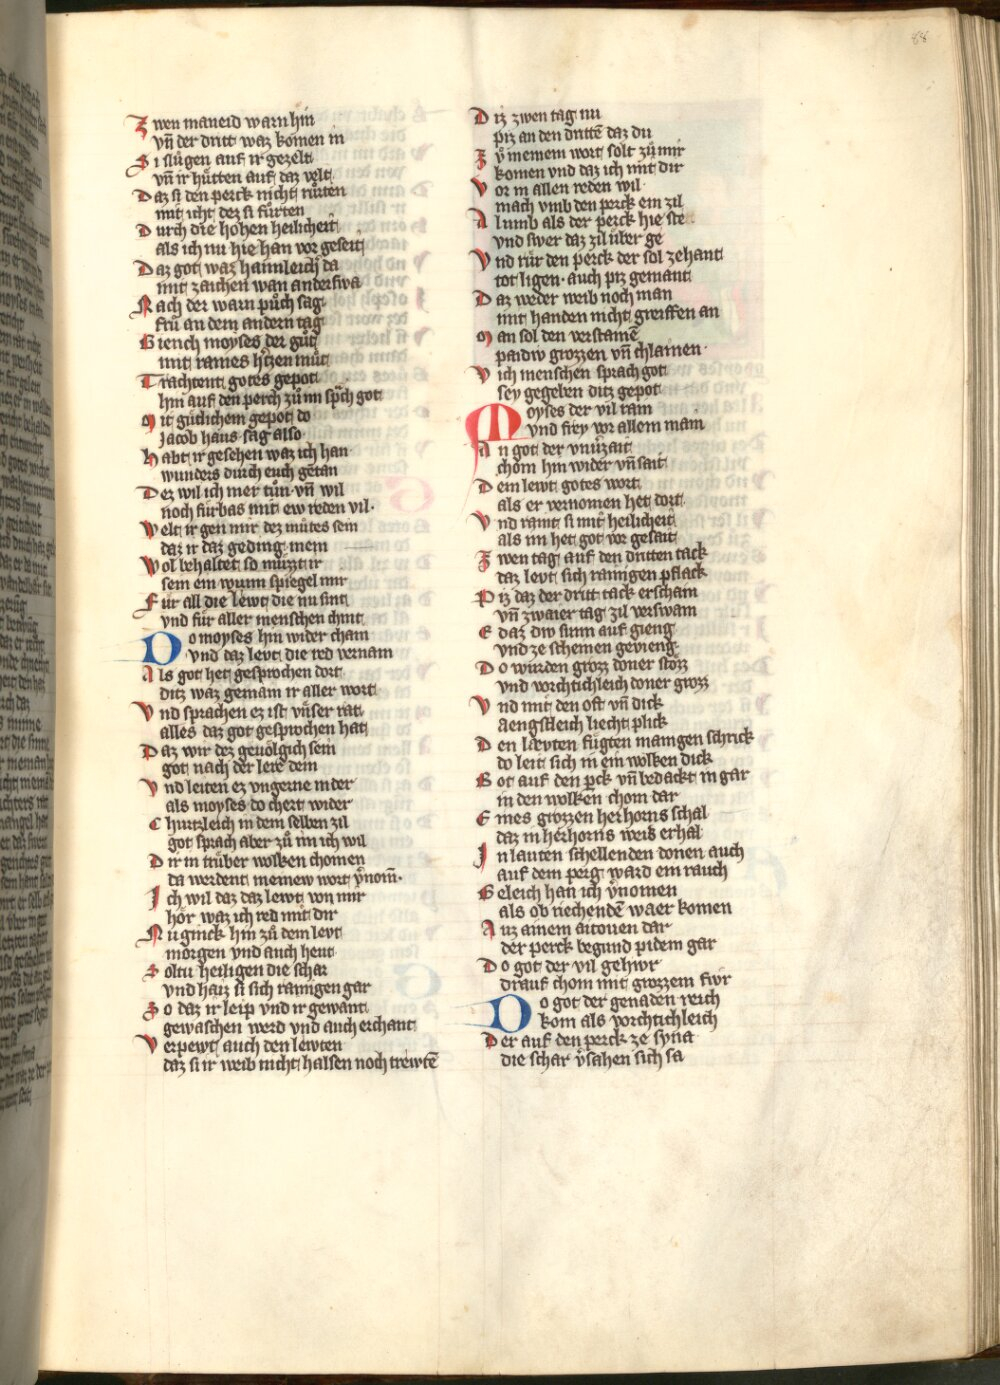 88
Zwen maneid warn hin
vn̄ der dritt waz komen in
Si slůgen auf ir gezelt
vn̄ ir hůtten auf daz velt
Daz si den perck nicht růrten
mit icht dez si fůrten
Durch die hohen heilicheit
als ich nu hie han vor geseit
Daz got waz haimleich da
mit zaichen wan anderswa
Nach der warn půch sag
frů an dem andern tag
Giench moyses der gůt
mit raines h̾tzen můt
Trachtent gotes gepot
hin auf den perch zů im sp̾ch got
Mit gůtlichem gepot do
Jacob haus sag also
Habt ir gesehen waz ich han
wunders durch euch getan
Dez wil ich mer tůn vn̄ wil
noch fůrbas mit ew reden vil
Welt ir gen mir dez můtes sein
daz ir daz geding mein
Wol behaltet so můzzt ir
sein ein wunn spiegel mir
Fůr all die lewt die nu sint
vnd fůr aller menschen chint
Do moyses hin wider cham
vnd daz levt die red vernam
Als got het gesprochen dort
ditz waz genaim ir aller wort
Vnd sprachen ez ist vnser rat
alles daz got gesprochen hat
Daz wir dez gevolgich sein
got nach der lere dein
Vnd leiten ez vngerne nider
als moyses do chert wider
Churtzleich in dem selben zil
got sprach aber zů im ich wil
Dir in trůber wolken chomen
da werdent meinew wort v̾nom̄
Ich wil daz daz lewt von mir
hör waz ich red mit dir
Nu ginck hin zů dem levt
morgen vnd auch heut
Soltu heiligen die schar
vnd haiz si sich rainigen gar
So daz ir leip vnd ir gewant
gewaschen werd vnd auch erchant
Verpewt auch den lewten
daz si ir weib nicht halsen noch trewtē
Diz zwen tag nu
piz an den drittē daz du
Zů meinem wort solt zů mir
komen vnd daz ich mit dir
Vor in allen reden wil
mach vmb den perck ein zil
Alumb als der perck hie ste
vnd swer daz zil über ge
Vnd růr den perck der sol zehant
tot ligen auch piz gemant
Daz weder weib noch man
mit handen nicht greiffen an
Man sol den verstainē
paidiv grozzen vn̄ chlainen
Vich menschen sprach got
sey gegeben ditz gepot
Moyses der vil rain
vnd frey vor allem main
An got der vnůzait
chom hin wider vn̄ sait
Dem lewt gotes wort
als er vernomen het dort
Vnd raint si mit heilicheit
als im het got vor gesait
Zwen tag auf den dritten tack
daz levt sich rainigen pflack
Piz daz der dritt tack erschain
vn̄ zwaier tag zil verswain
E daz div sunn auf gieng
vnd ze scheinen gevieng
Do wurden groz doner stözz
vnd vorchtichleich doner grozz
Vnd mit den oft vn̄ dick
aengstleich liecht plick
Den læyten fůgten manigen schrick
do leit sich in ein wolken dick
Got auf den p̾ck vn̄ bedackt in gar
in den wolken chom dar
Eines grozzen herhorns schal
daz in herhorns weis erhal
In lauten schellenden donen auch
auf dem perg ward ein rauch
Geleich han ich v̾nomen
als ob riechendē waer komen
Auz ainem aitouen dar
der perck begund pidem gar
Do got der vil gehiwr
drauf chom mit grozzem fiwr
Do got der genaden reich
kom als vorchtichleich
Der auf den perck ze syna
die schar v̾sahen sich sa